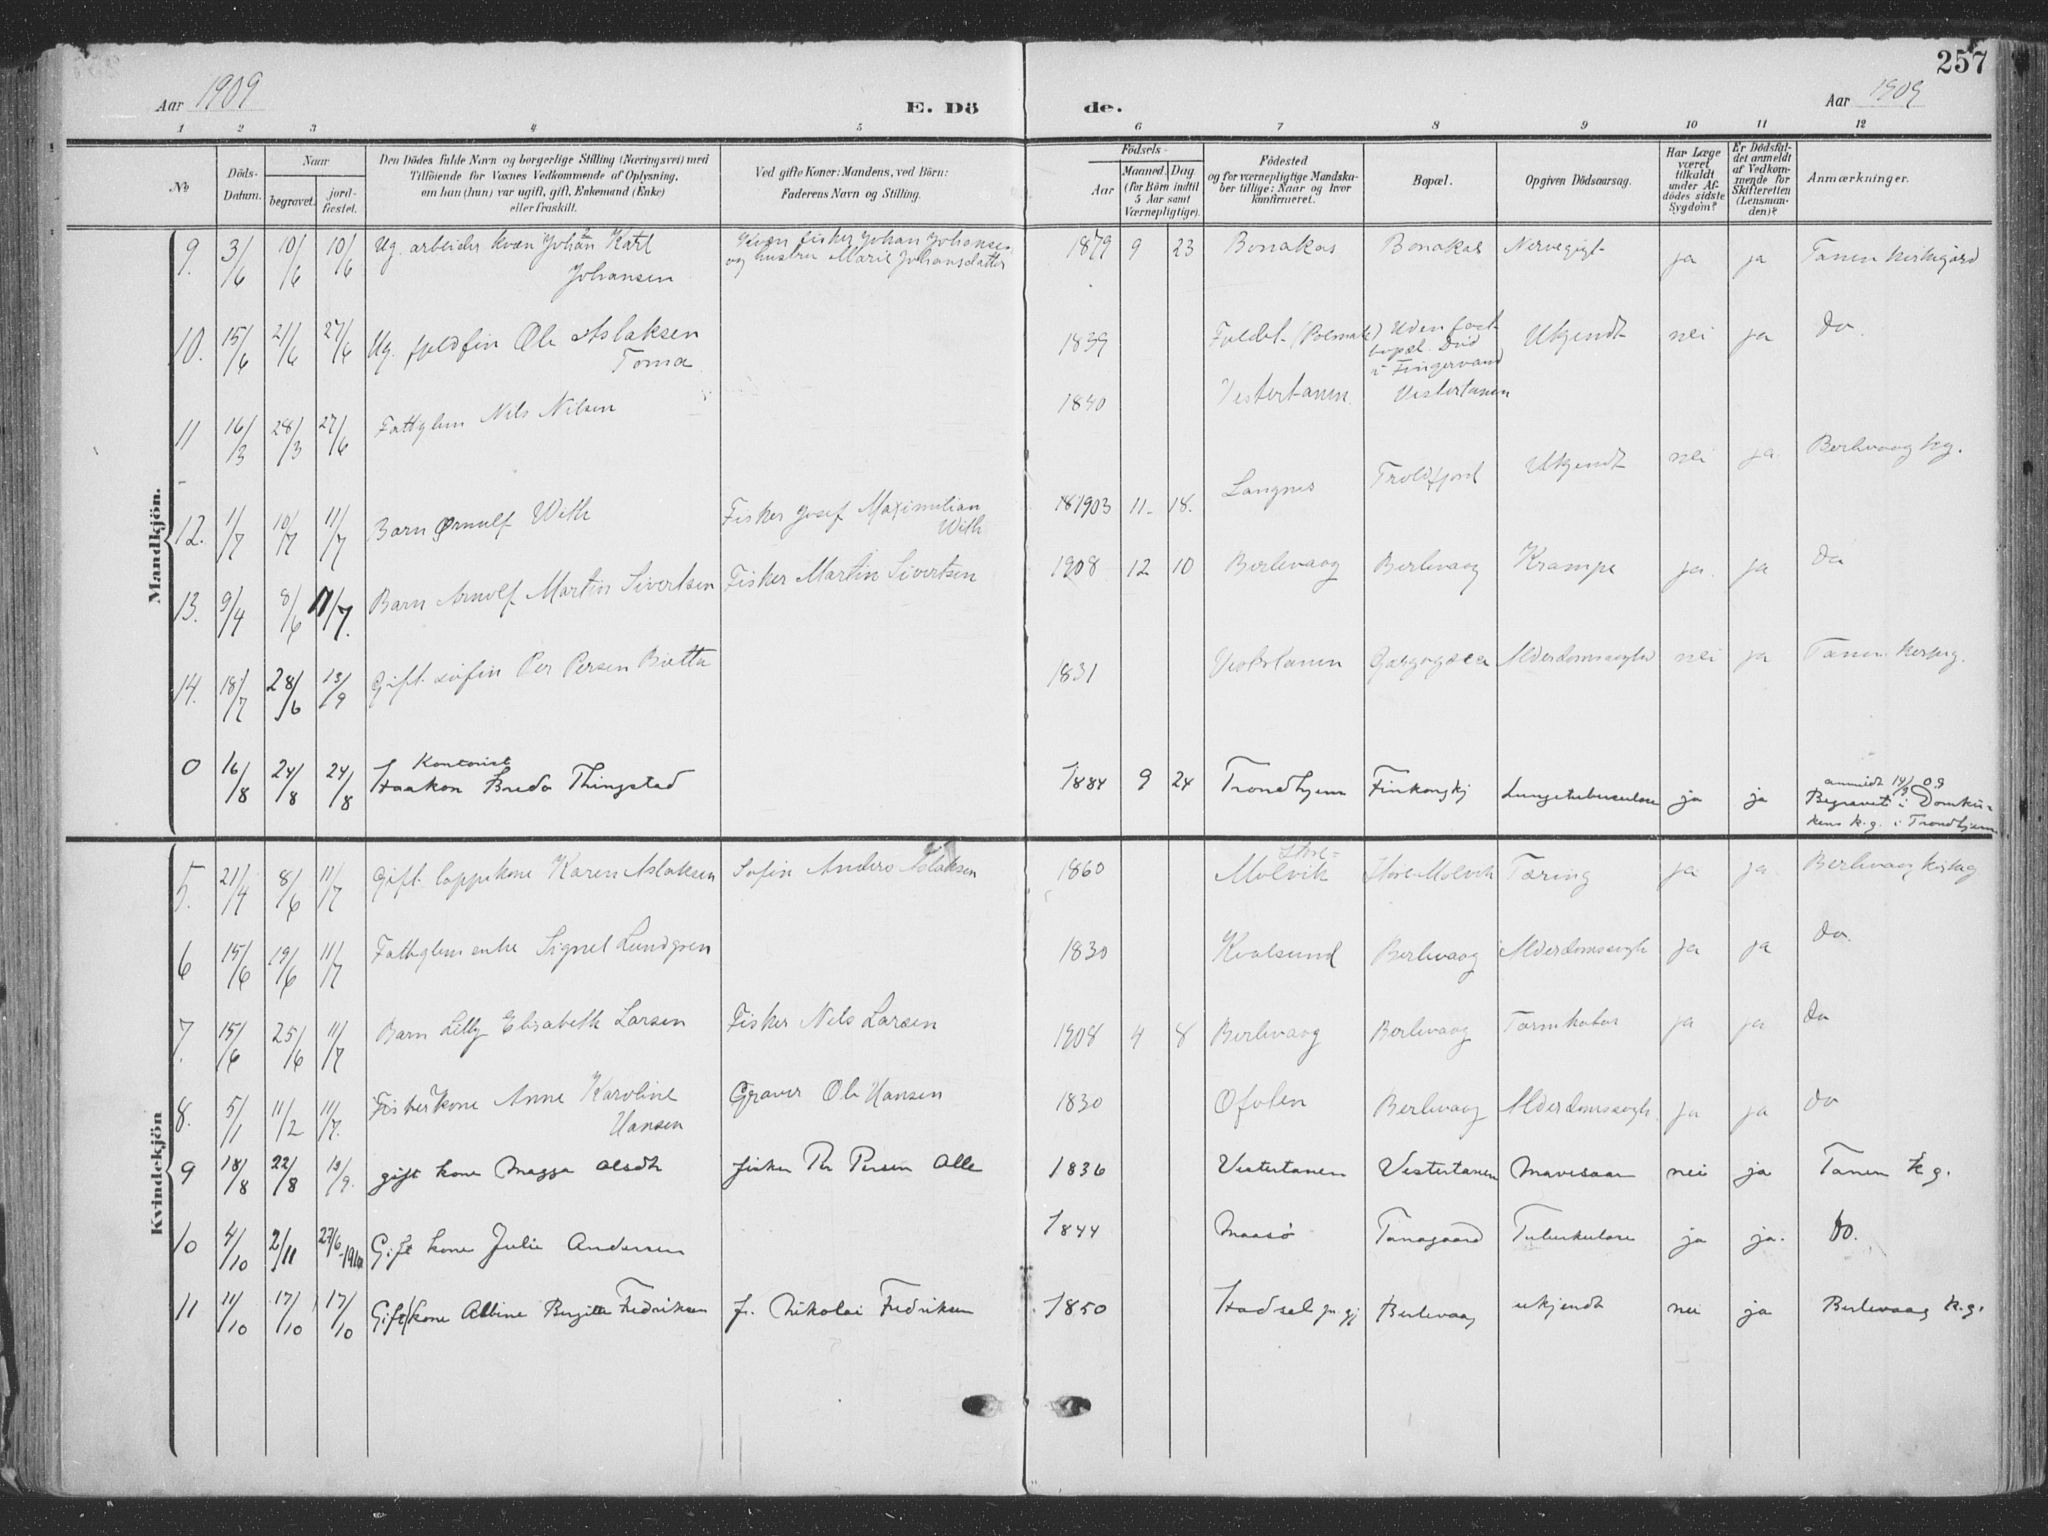 257
Aar 1909
E. Döde.
Aar 1909
1 2 3 4 5 6 7 8 9 10 11 12
No
Döds-Datum.
Naar
begravet.
jord-fæstet.
Den Dödes fulde Navn og borgerlige Stilling (Næringsvei) med
Tilföiende for Voxnes Vedkommende af Oplysning,
om han (hun) var ugift, gift, Enkemand (Enke)
eller fraskilt.
Ved gifte Koner: Mandens, ved Börn:
Faderens Navn og Stilling.
Födsels-
Aar
Maaned. Dag
(for Börn indtil
5 Aar samt
Værnepligtige).
Födested
og for værnepligtige Mandska-
ber tillige: Naar og hvor
konfirmeret.
Bopæl.
Opgiven Dödsaarsag.
Har Læge
været
tilkaldt
under Af-
dödes sidste
Sygdom?
Er Dödsfal-
det anmeldt
af Vedkom-
mende for
Skifteretten
(Lensman-
den)?
Anmærkninger.
Mandkjön.
9. 3/6 10/6 10/6 Ug. arbeider kvæn Johan Karl Johansen
Kvæn fisker Johan Johansen og hustru Marie Johansdatter
1879 9 23 Bonakas Bonakas Nervegigt ja ja Tanen kirkegård
10. 15/6 21/6 27/6 Ug. fjeldfin Ole Aslaksen Toma
1839 Fjeldet (Polmak) Uden fast bopæl. Död i Fingervand Ukjendt nei ja do.
11 16/3 28/3 27/6 Fattiglem Nils Nilsen
1840 Vestertanen Vestertanen
12. 1/7 10/7 11/7 Barn Ørnulf With Fisker Josef Maximilian With
1903 11 18. Langnes Troldfjord Ukjendt nei ja Berlevaag kg.
13. 9/4 8/6 11/7. Barn Arnolf Martin Sivertsen Fisker Martin Sivertsen
1908 12 10 Berlevaag Berlevaag Krampe ja ja do
14. 18/7 28/6 13/9 Gift søfin Per Persen
1831 Alderdomssvaghed nei ja Tanen
0 16/8 24/8 24/8 Kontorist
Haakon Breda Thingstad
1884 9 24 Trondhjem Finkongkj Lungetuberculose ja ja anmeldt 14/9 09
Begravet i Domkir-
kens k.g. i Trondhjem
Kvindekjön
5. 21/4 8/6 11/7 Gift lappekone Karen Aslaksen Søfin Anders Aslaksen
1860 Store-Molvik Store-Molvik Tæring ja ja Berlevaag kirkeg
6 15/6 19/6 11/7 Fattiglem enke Signel Lundgren
1830 Kvalsund Berlevaag Alderdomssvagh ja ja do.
7. 15/6 25/6 11/7 Barn Lilly Elisabeth Larsen Fisker Nils Larsen
1908 4 8 Berlevaag Berlevaag Tarmkatar ja ja do
8. 5/1 11/2 11/7. Fiskerkone Anne Karoline Hansen Graver Ole Hansen
1830 Ofoten Berlevaag Alderdomssvagh. ja ja do
9 18/8 22/8 13/9. gift kone Magga Olsdt fisker Per Persen Alle
1836 Vestertanen Vestertanen Mavesaar nei ja Tanen k g.
10 4/10 2/11 27/6-1910 Gift kone Julie Andersen
1844 Maasø Tanagaard Tuberkulose ja ja. do.
11 11/10 17/10 17/10 Gift kone Albine Birgitte Fedriksen f. Nikolai Fedriksen
1850 Hadsel pr. gj Berlevaag ukjendt nei ja Berlevaag k.g.